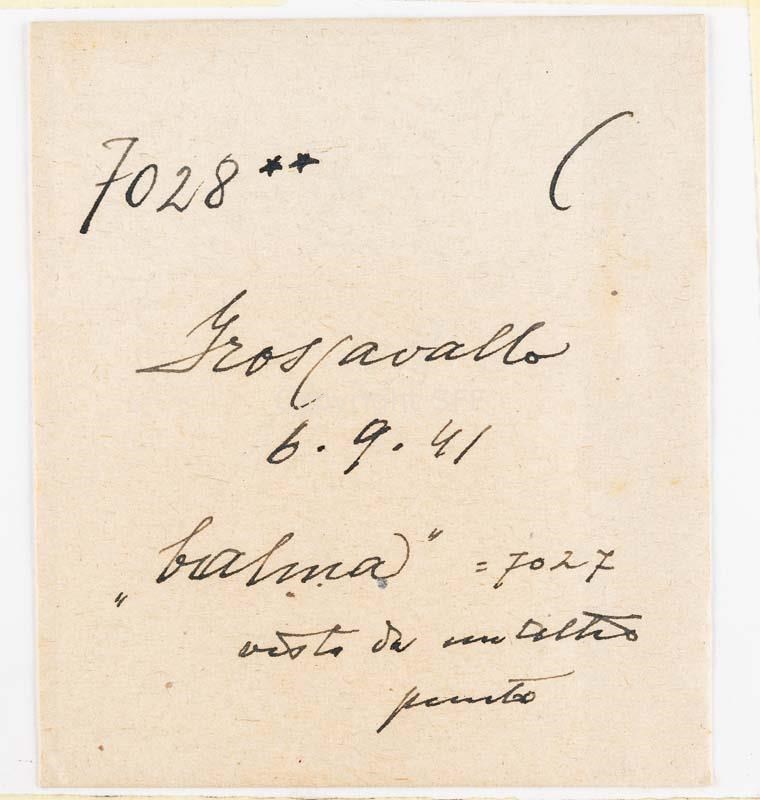 7028 ** (
Groscavallo
6.9.41
„balma" = 7027
visto da un altro
punto